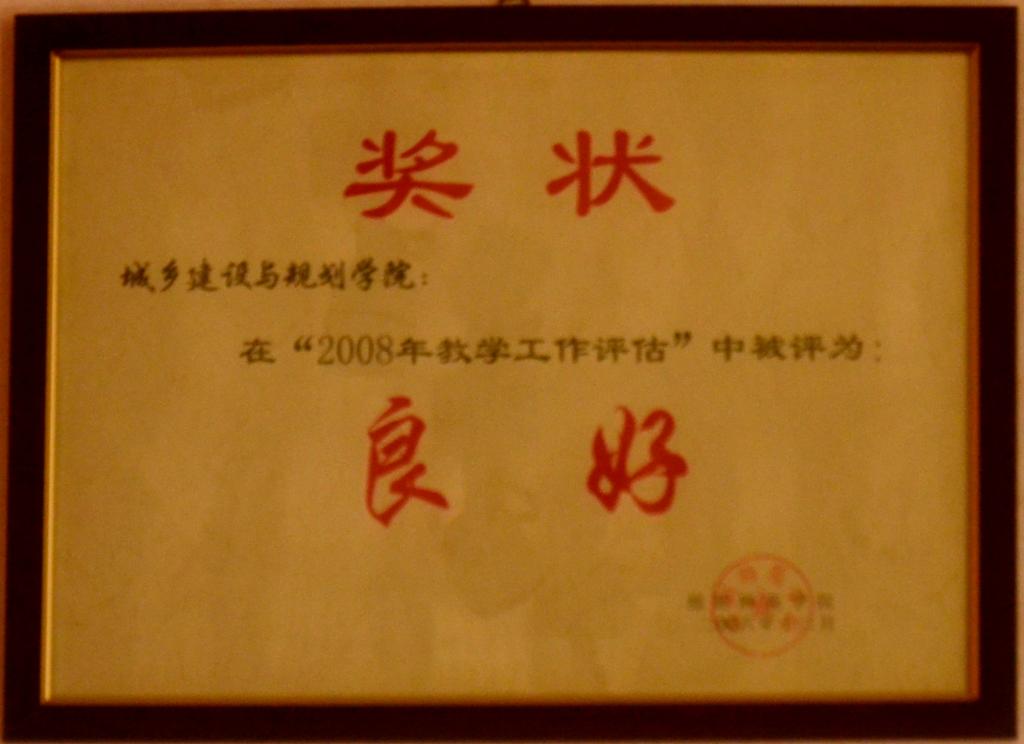 奖 状
城乡建设与规划学院：
在“2008年教学工作评估”中被评为：
良 好